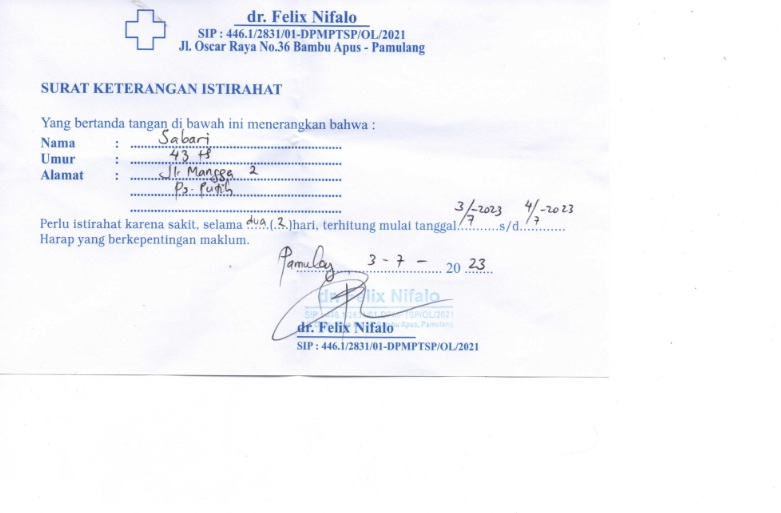 dr. Felix Nifalo
SIP : 446.1/2831/01-DPMPTSP/OL/2021
Jl. Oscar Raya No.36 Bambu Apus - Pamulang
SURAT KETERANGAN ISTIRAHAT
Yang bertanda tangan di bawah ini menerangkan bahwa :
Nama : Sabari
Umur : 43 th
Alamat : Jln Mangga 2
Ps. Putih
Perlu istirahat karena sakit, selama dua (2) hari, terhitung mulai tanggal 3/7-2023 s/d 4/7-2023
Harap yang berkepentingan maklum.
Pamulang 3 - 7 - 20 23
dr. Felix Nifalo
SIP : 446.1/2831/01-DPMPTSP/OL/2021
dr. Felix Nifalo
SIP : 446.1/2831/01-DPMPTSP/OL/2021